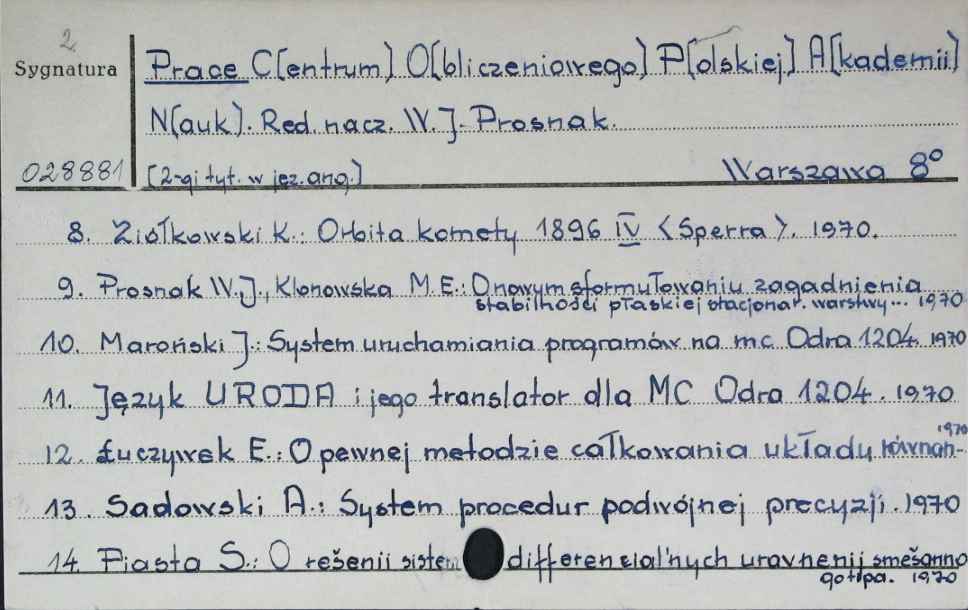 2
Sygnatura
Prace C[entrum] O[bliczeniowego] P[olskiej] A[kademii]
N[auk]. Red. nacz. W. J. Prosnak.
028881
[2-gi tyt. w jęz. ang.] Warszawa 8°
8. Ziółkowski K.: Orbita komety 1896 IV <Sperra>. 1970.
9. Prosnak W. J., Klonowska M. E.: O nowym sformułowaniu zagadnienia
stabilności płaskiej stacjonar. warstwy... 1970
10. Maroński J.: System uruchamiania programów na mc Odra 1204. 1970
11. Język URODA i jego translator dla MC Odra 1204. 1970
12. Łuczywek E.: O pewnej metodzie całkowania układu równań- 1970
13. Sadowski A.: System procedur podwójnej precyzji. 1970
14. Piasta S.: O rešenii sistem differencial'nych uravnenij smešanno
go tipa. 1970